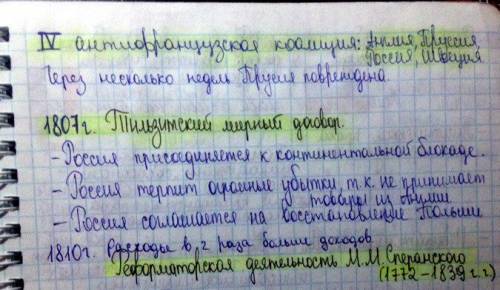 IV антифранцузская коалиция: Англия, Пруссия,
Россия, Швеция
Через несколько недель Прусия повреждена.
1807г. Тильзитский мирный договор.
- Россия присоединяется к континентальной блокаде.
- Россия терпит огромные убытки, т.к. не принимает
товары из Англии
- Россия соглашается на восстановление Польши
1810г. Расходы в 2 раза больше доходов
Реформаторская деятельность М.М. Сперанского
(1772-1839 г.г)